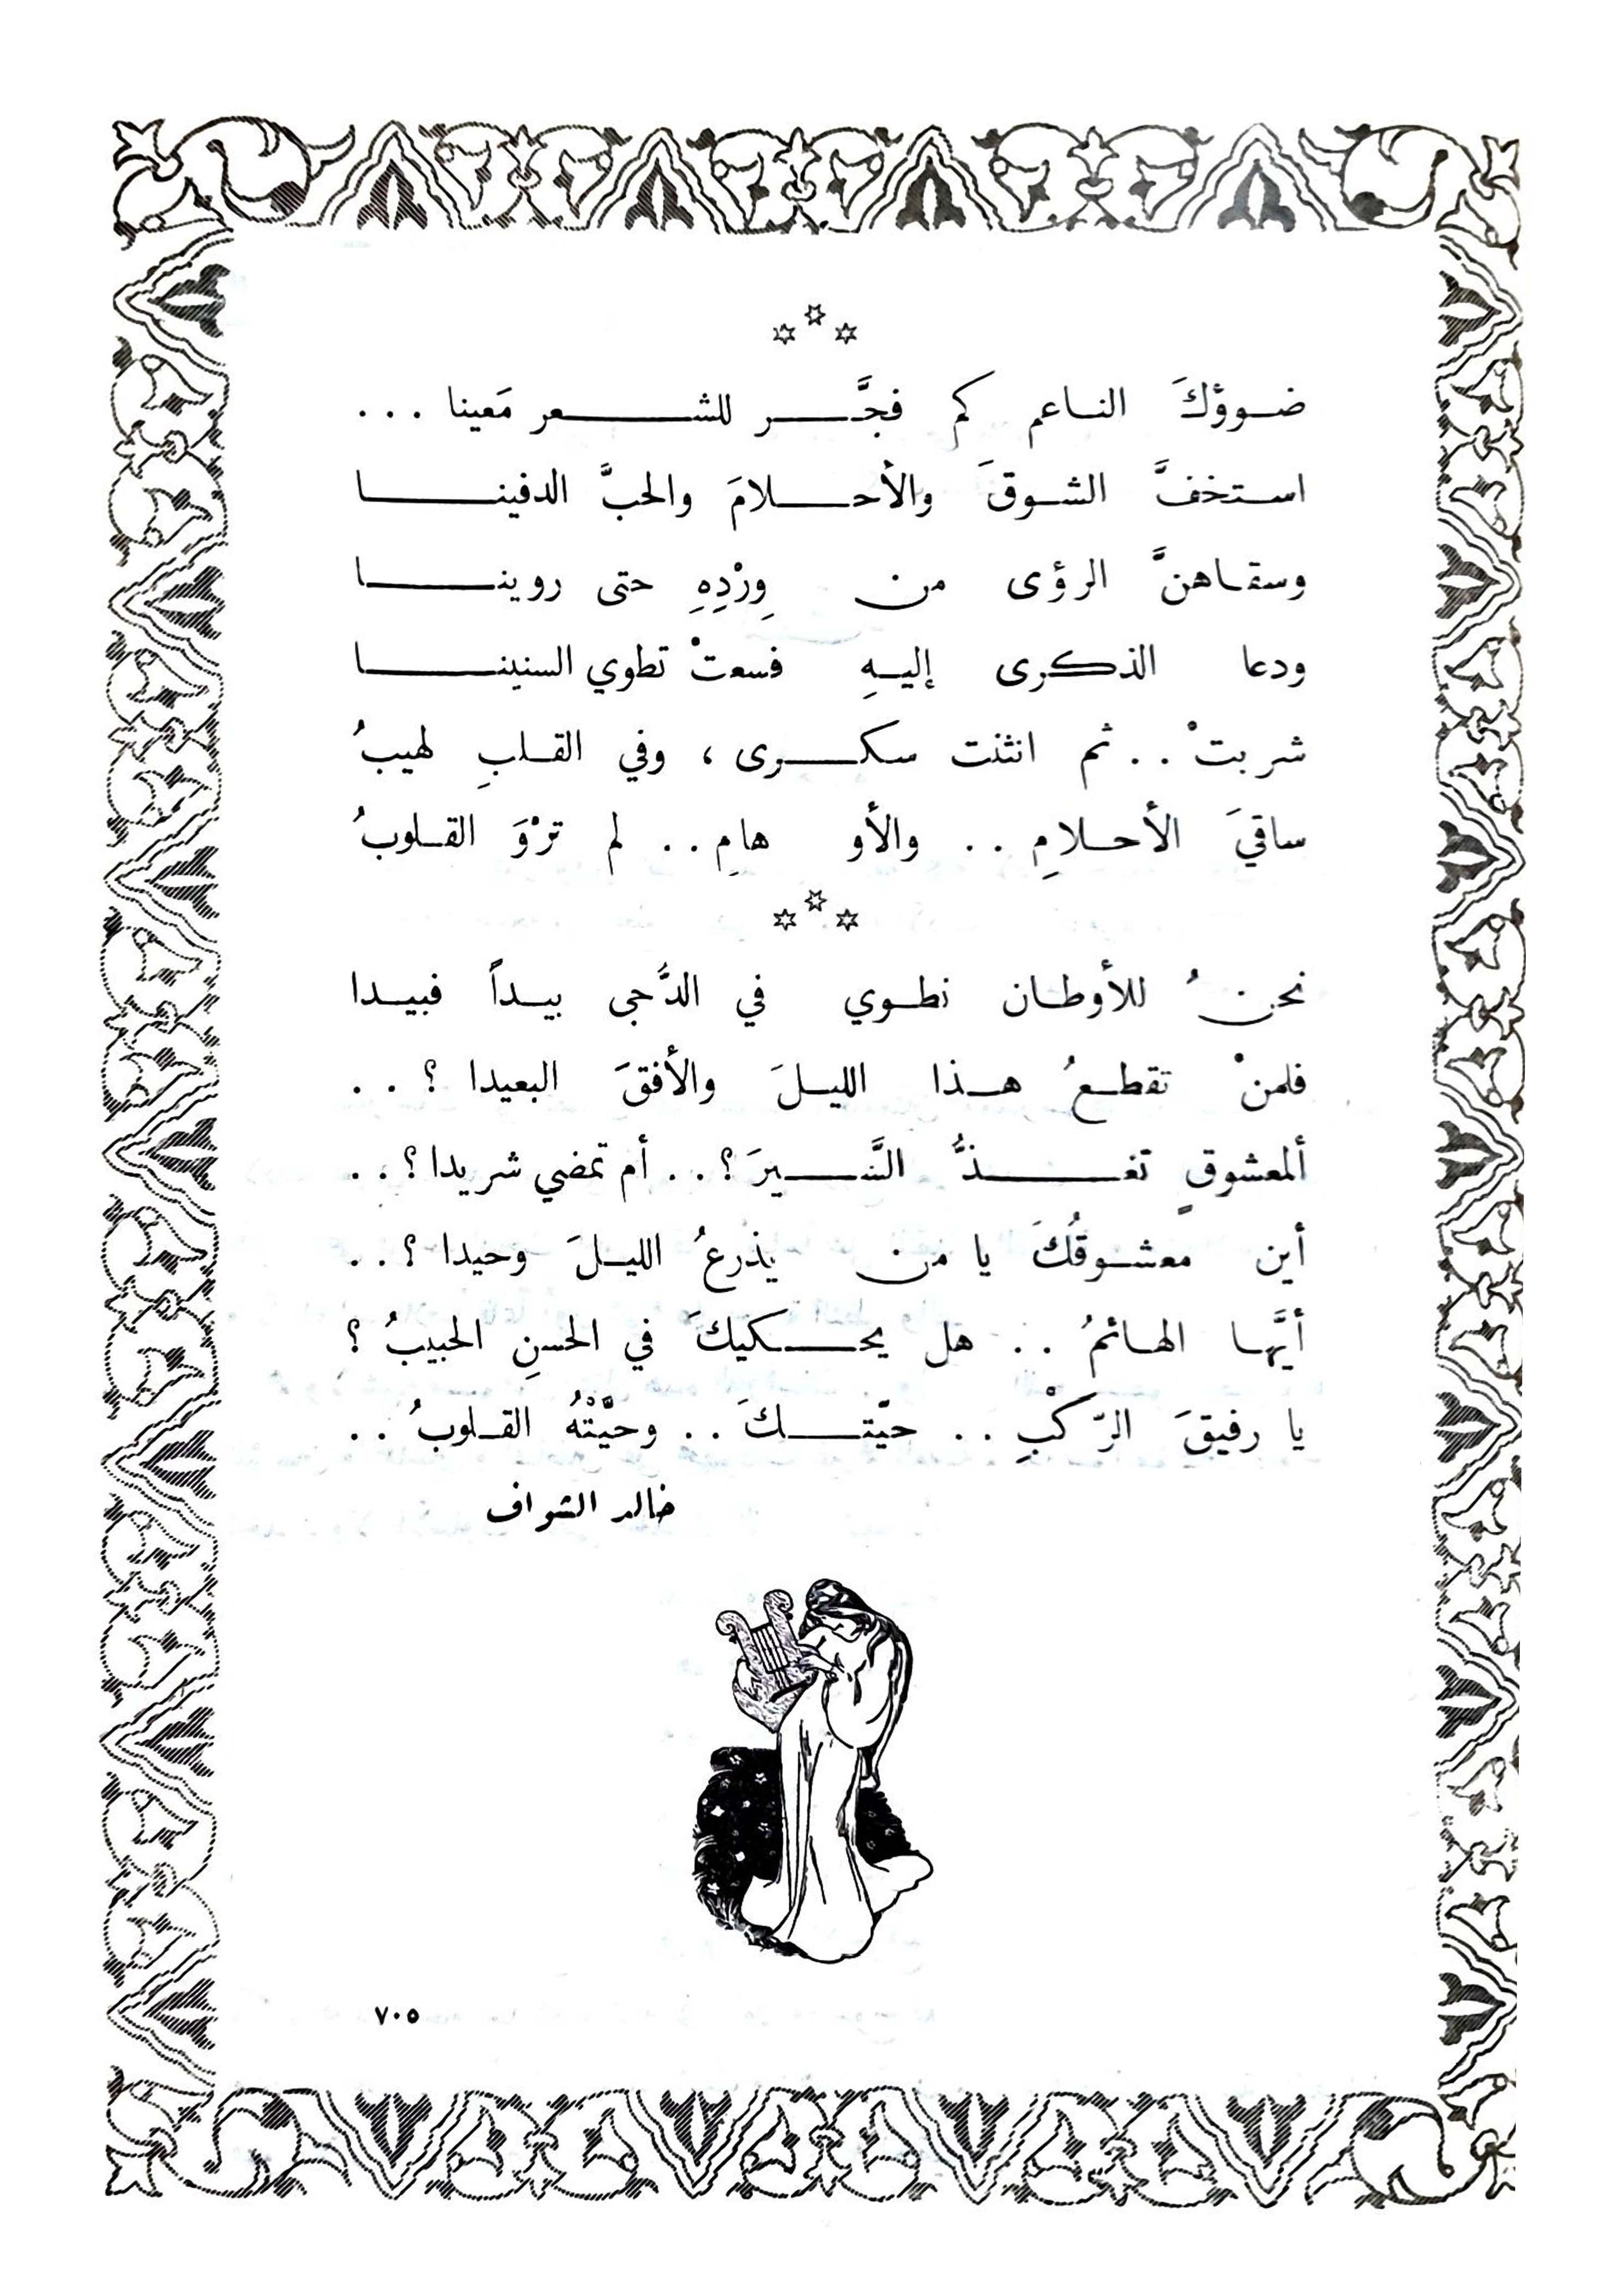 ضوؤكَ الناعم كم فجَّر للشعر مَعينا . . .
استخفَّ الشوقَ والأحلامَ والحبَّ الدفينا
وسقاهنَّ الرؤى من وِرْدِهِ حتى روينا
ودعا الذكرى إليهِ فسعتْ تطوي السنينا
شربتْ . . ثم انثنت سكرى ، وفي القلبِ لهيبُ
ساقيَ الأحلامِ . . والأو هامِ . . لم ترْوَ القلوبُ
نحنُ للأوطان نطوي في الدُّجى بيداً فبيدا
فلمنْ تقطعُ هذا الليلَ والأفقَ البعيدا ؟ . .
ألمعشوقٍ تغذُّ السَّيرَ ؟ . . أم تمضي شريدا ؟ . .
أين معشوقُكَ يا من يذرعُ الليلَ وحيدا ؟ . .
أيَّها الهائمُ . . هل يحكيكَ في الحسنِ الحبيبُ ؟
يا رفيقَ الرّكْبِ . . حيّتكَ . . وحيَّتْهُ القلوبُ . .
خالد الشواف
٧٠٥